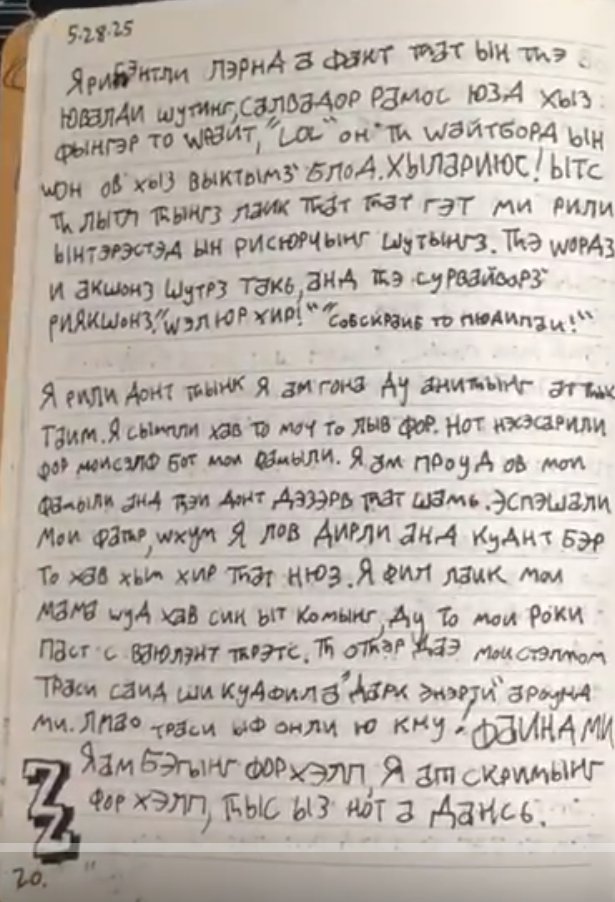 5.28.25
Я рисэнтли лэрнд а факт тhат ын тhэ
Ювалди шутинг, Салвадор Рамос юзд хыз
фынгэр то wрайт, "LOL" он тh wайтборд ын
wон ов хыз выктымз блод. Хылариюс! Ытс
тh лытл тhынгз лаик тhат тhат гэт ми рили
ынтэрэстэд ын рисюрчынг шутынгз. Тhэ wордз
и акшонз шутрз такь, анд тhэ сурвайворз
риякшонз! "wэлюр хир!" "собскраиб то пюдипаи!"
Я рили донт тhынк Я ам гона ду анитhынг ат тhыс
таим. Я сымпли хав то моч то лыв фор. Нот нэсэсарили
фор моисэлф бот мои фамыли. Я ам проуд ов мои
фамыли анд тhэи донт дэзэрв тhат шамь. Эспэшали
мои фатhр, wхум Я лов дирли анд куднт бэр
то хав хым хир тhат нюз. Я фил лаик мои
мама шуд хав син ыт комынг, ду то мои роки
паст с ваюлэнт тhрэтс. Тh отhэр даэ мои стэпмом
Траси саид ши куд фил а "дарк энэрзи" араунд
ми. Лмао Траси ыф онли ю кну! ФАИНД МИ
Я ам бэгынг фор хэлп, Я ам скримынг
фор хэлп, тhыс ыз нот а дансь.
20.